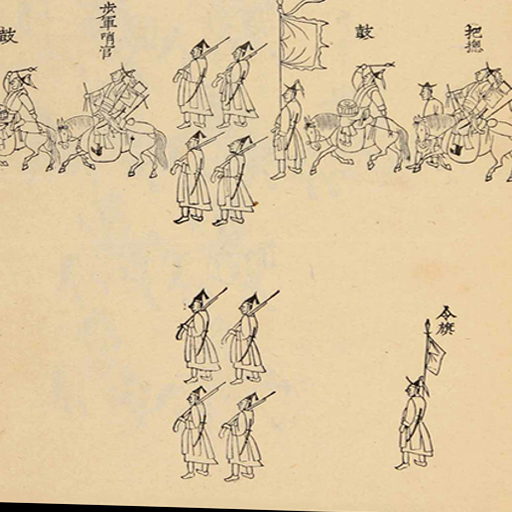 把摠
鼓
步軍哨官
鼓
令旗